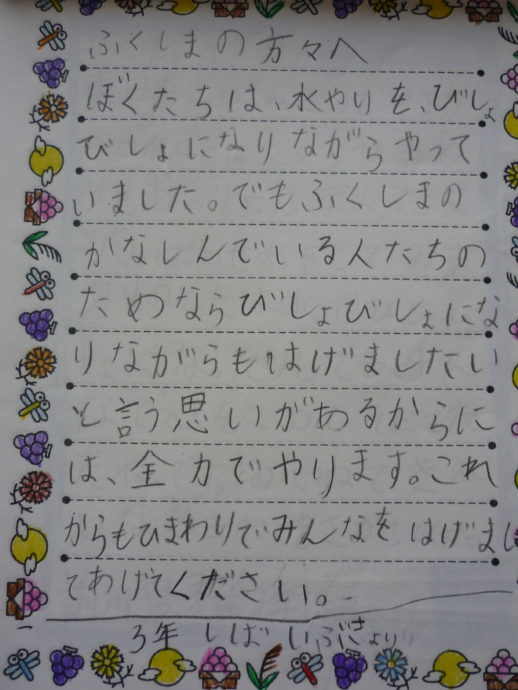 ふくしまの方々へ
ぼくたちは、水やりを、びしょ
びしょになりながらやって
いました。でもふくしまの
かなしんでいる人たちの
ためならびしょびしょにな
りながらもはげましたい
と言う思いがあるからに
は、全力でやります。これ
からもひまわりでみんなをはげまし
てあげてください。
3年 しば いぶきより